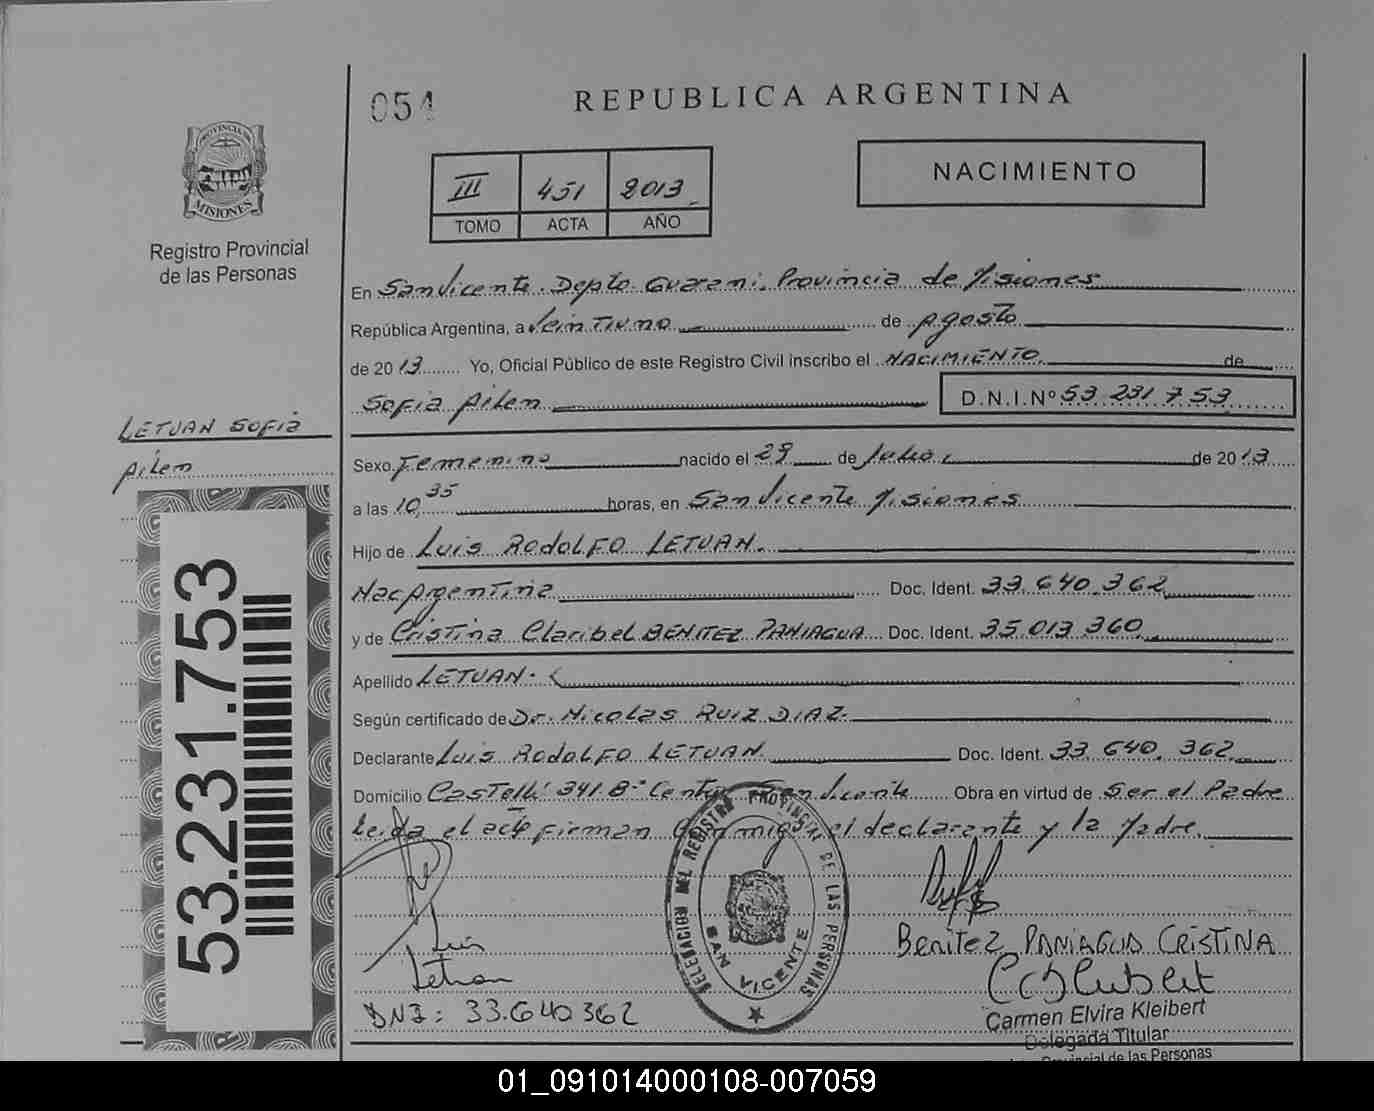 054
REPUBLICA ARGENTINA
NACIMIENTO
III 451 2013
TOMO ACTA AÑO
PROVINCIA DE
MISIONES
Registro Provincial
de las Personas
En San Vicente. Depto Guarani. Provincia de Misiones
República Argentina, a Veintiuno de Agosto
de 2013 Yo, Oficial Público de este Registro Civil inscribo el NACIMIENTO de
Sofia Ailen D.N.I.Nº 53 231 753
LETUAN SOFIA
Ailen
Sexo Femenino nacido el 29 de Julio de 2013
a las 10,35 horas, en San Vicente Misiones
Hijo de Luis RODOLFO LETUAN.
Nac Argentina Doc. Ident. 33.640.362
y de Cristina Claribel BENITEZ PANIAGUA Doc. Ident. 35.013.360
Apellido LETUAN.
Según certificado de Dr. Nicolas RUIZ DIAZ.
Declarante Luis RODOLFO LETUAN Doc. Ident. 33.640.362
Domicilio Castelli 341 Bº Centro San Vicente Obra en virtud de Ser el Padre
Leida el acta firman conmigo el declarante y la Madre.
53.231.753
DELEGACION DEL REGISTRO PROVINCIAL DE LAS PERSONAS
SAN VICENTE
Luis
Letuan
DNI: 33.640362
Benitez PANIAGUA CRISTINA
Carmen Elvira Kleibert
Delegada Titular
Provincial de las Personas
01_091014000108-007059